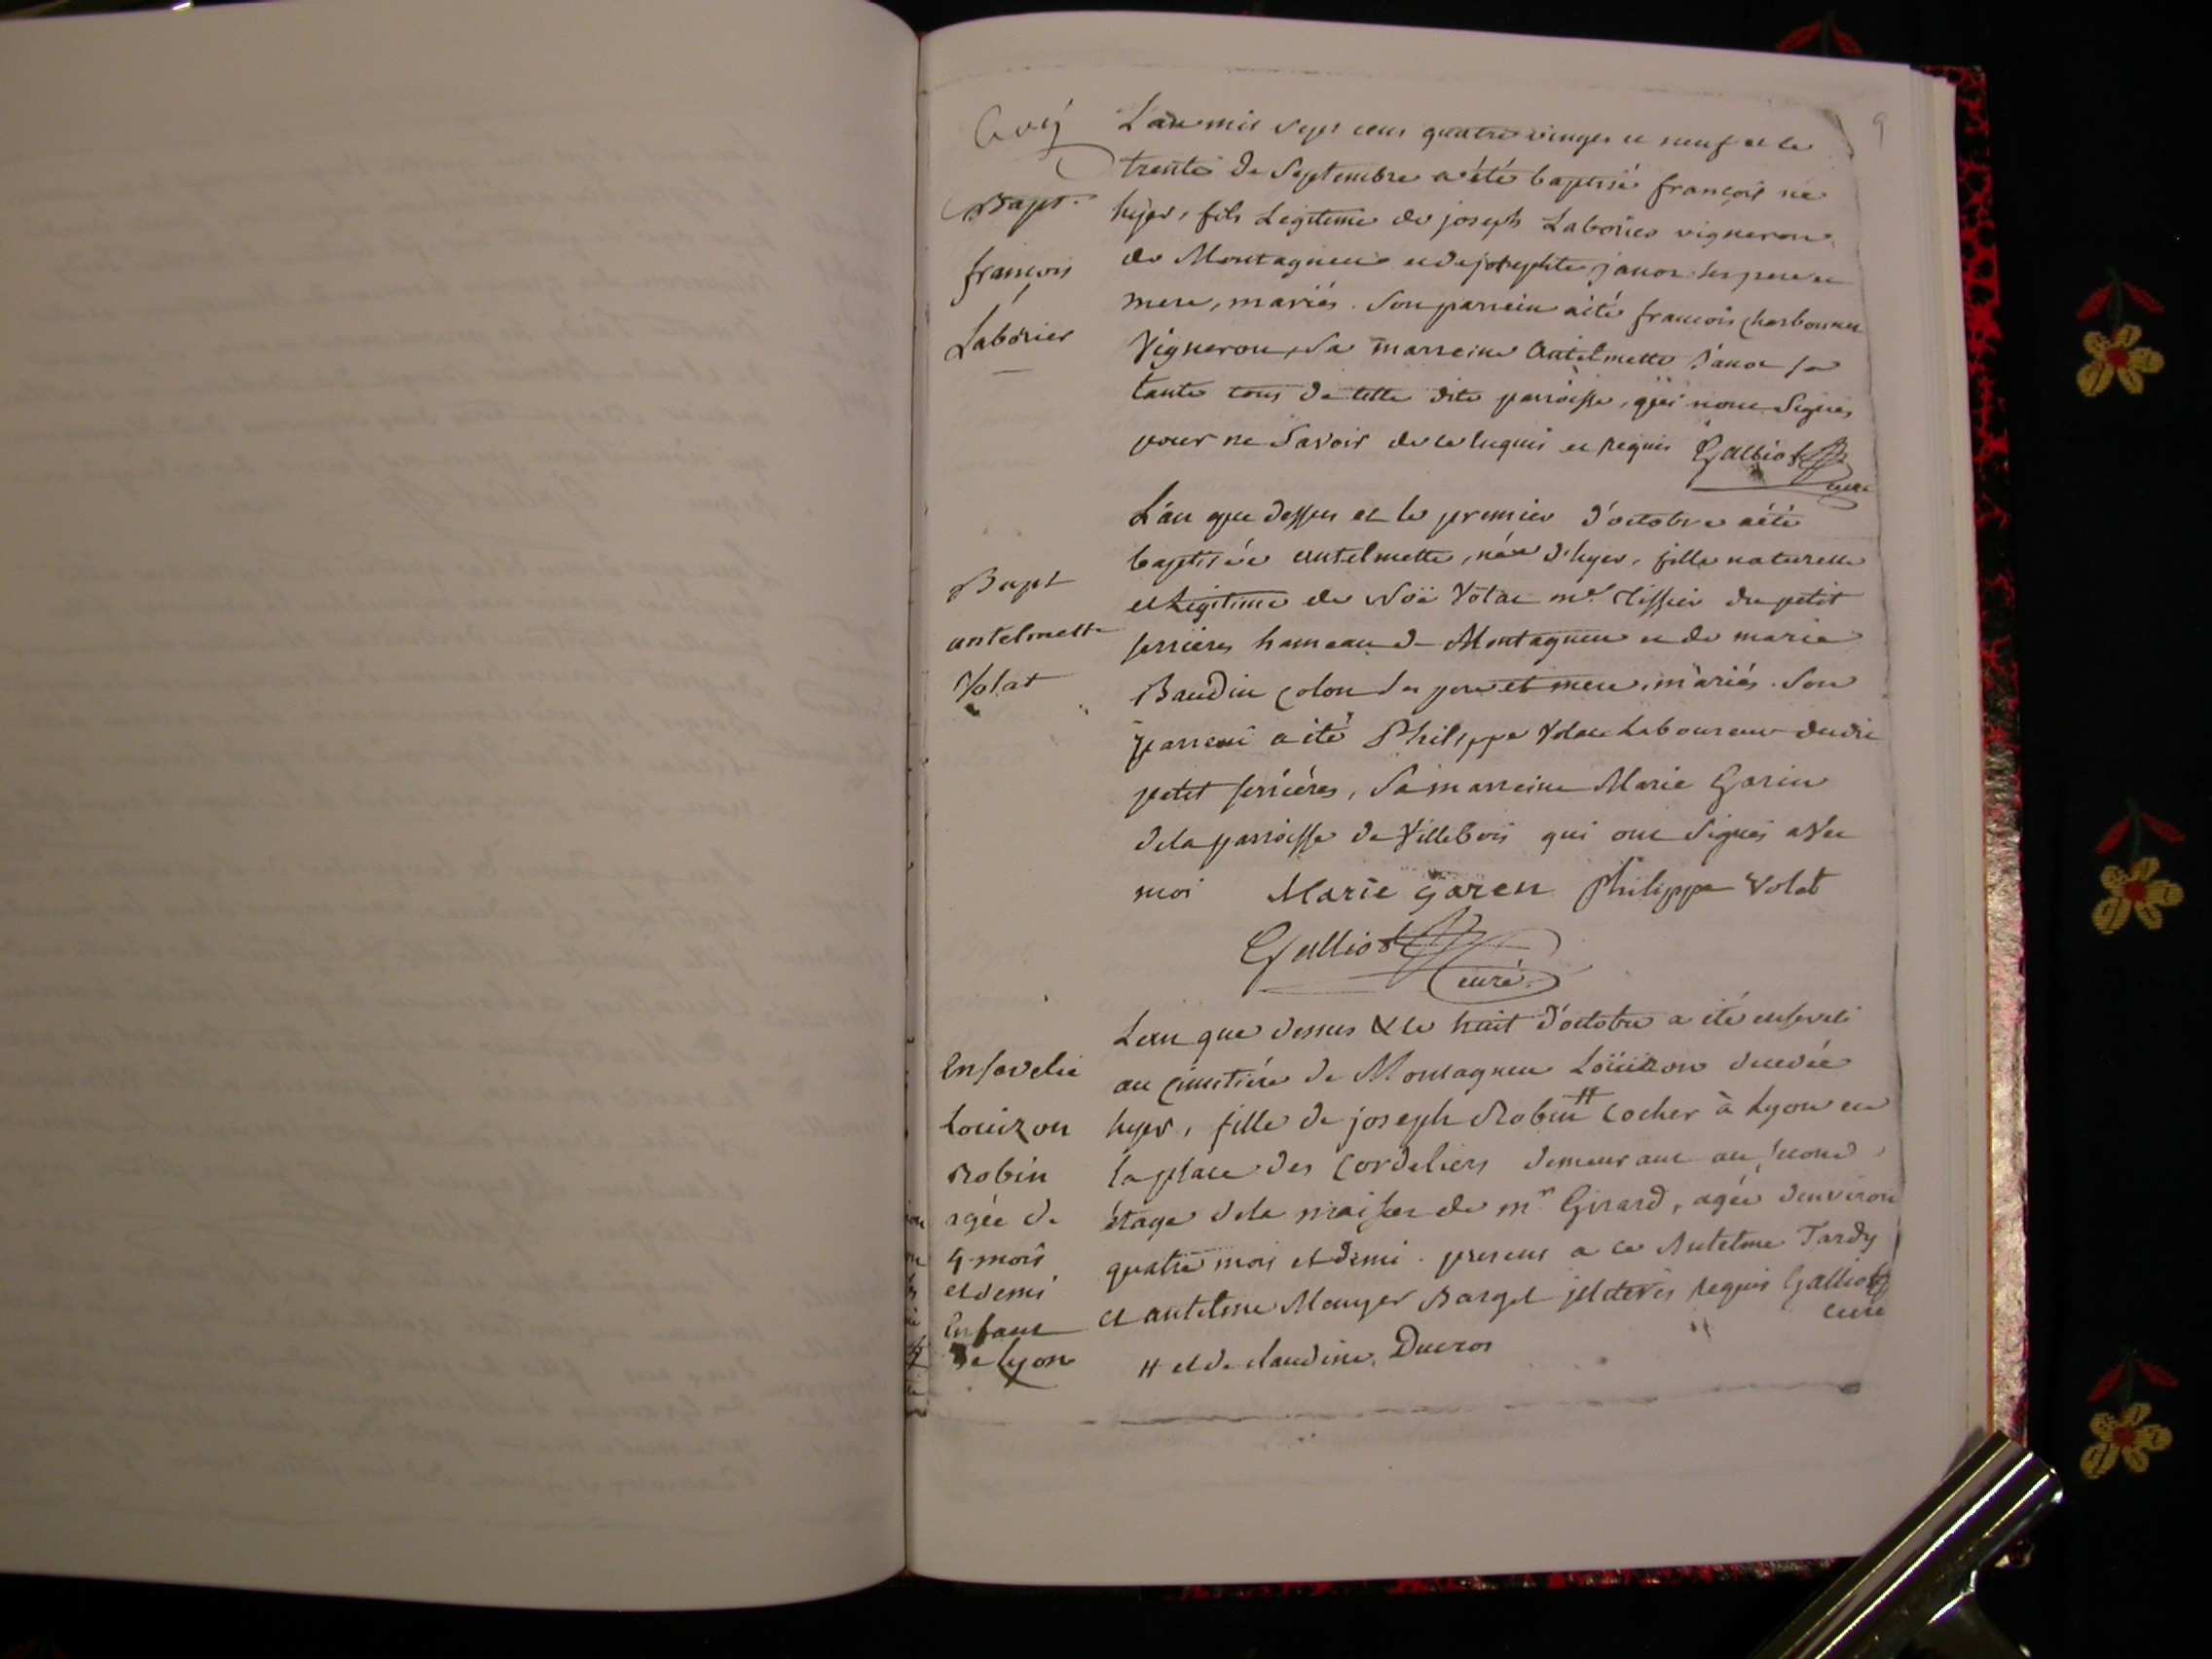 9
Bapt.
françois
Laborier
L'an mil sept cens quatre vingts et neuf et le
trente de Septembre a été baptisé françois né
hyer, fils Légitime de joseph Laborier vigneron
de Montagneu et de josephte janor ses pere et
mere, mariés. Son parrein a été francois Charbonnet
Vigneron, Sa marreine Antelmette Janor sa
tante tous de cette dite parroisse, qui n'ont Signés
pour ne Savoir de ce enquis et requis Galliot
curé
Bapt
antelmette
Volat
L'an que dessus et le premier d'octobre a été
baptisée antelmette, née d'hyer, fille naturelle
et Légitime de Noë Volat md. tissier du petit
serrières hameau de Montagneu et de marie
Baudin Colon ses pere et mere, mariés. Son
parrein a été Philippe Volat Laboureur dudit
petit serrières, Sa marreine Marie Garin
de la parroisse de Villebois qui ont Signés avec
moi Marie garen Philippe Volat
Galliot
curé.
Ensevelie
Louizon
Robin
agée de
4 mois
et demi
Enfant
de Lyon
L'an que dessus & le huit d'octobre a été enseveli
au cimetiére de Montagneu Loüizon decedée
hyer, fille de joseph Robin # Cocher à Lyon en
la place des Cordeliers demeurant au second
étage de la maison de mr Girard, agée d'environ
quatre mois et demi. presens a ce Antelme Tardy
et antelme Monyer Barget illiterés requis Galliot
curé
# et de claudine Ducros